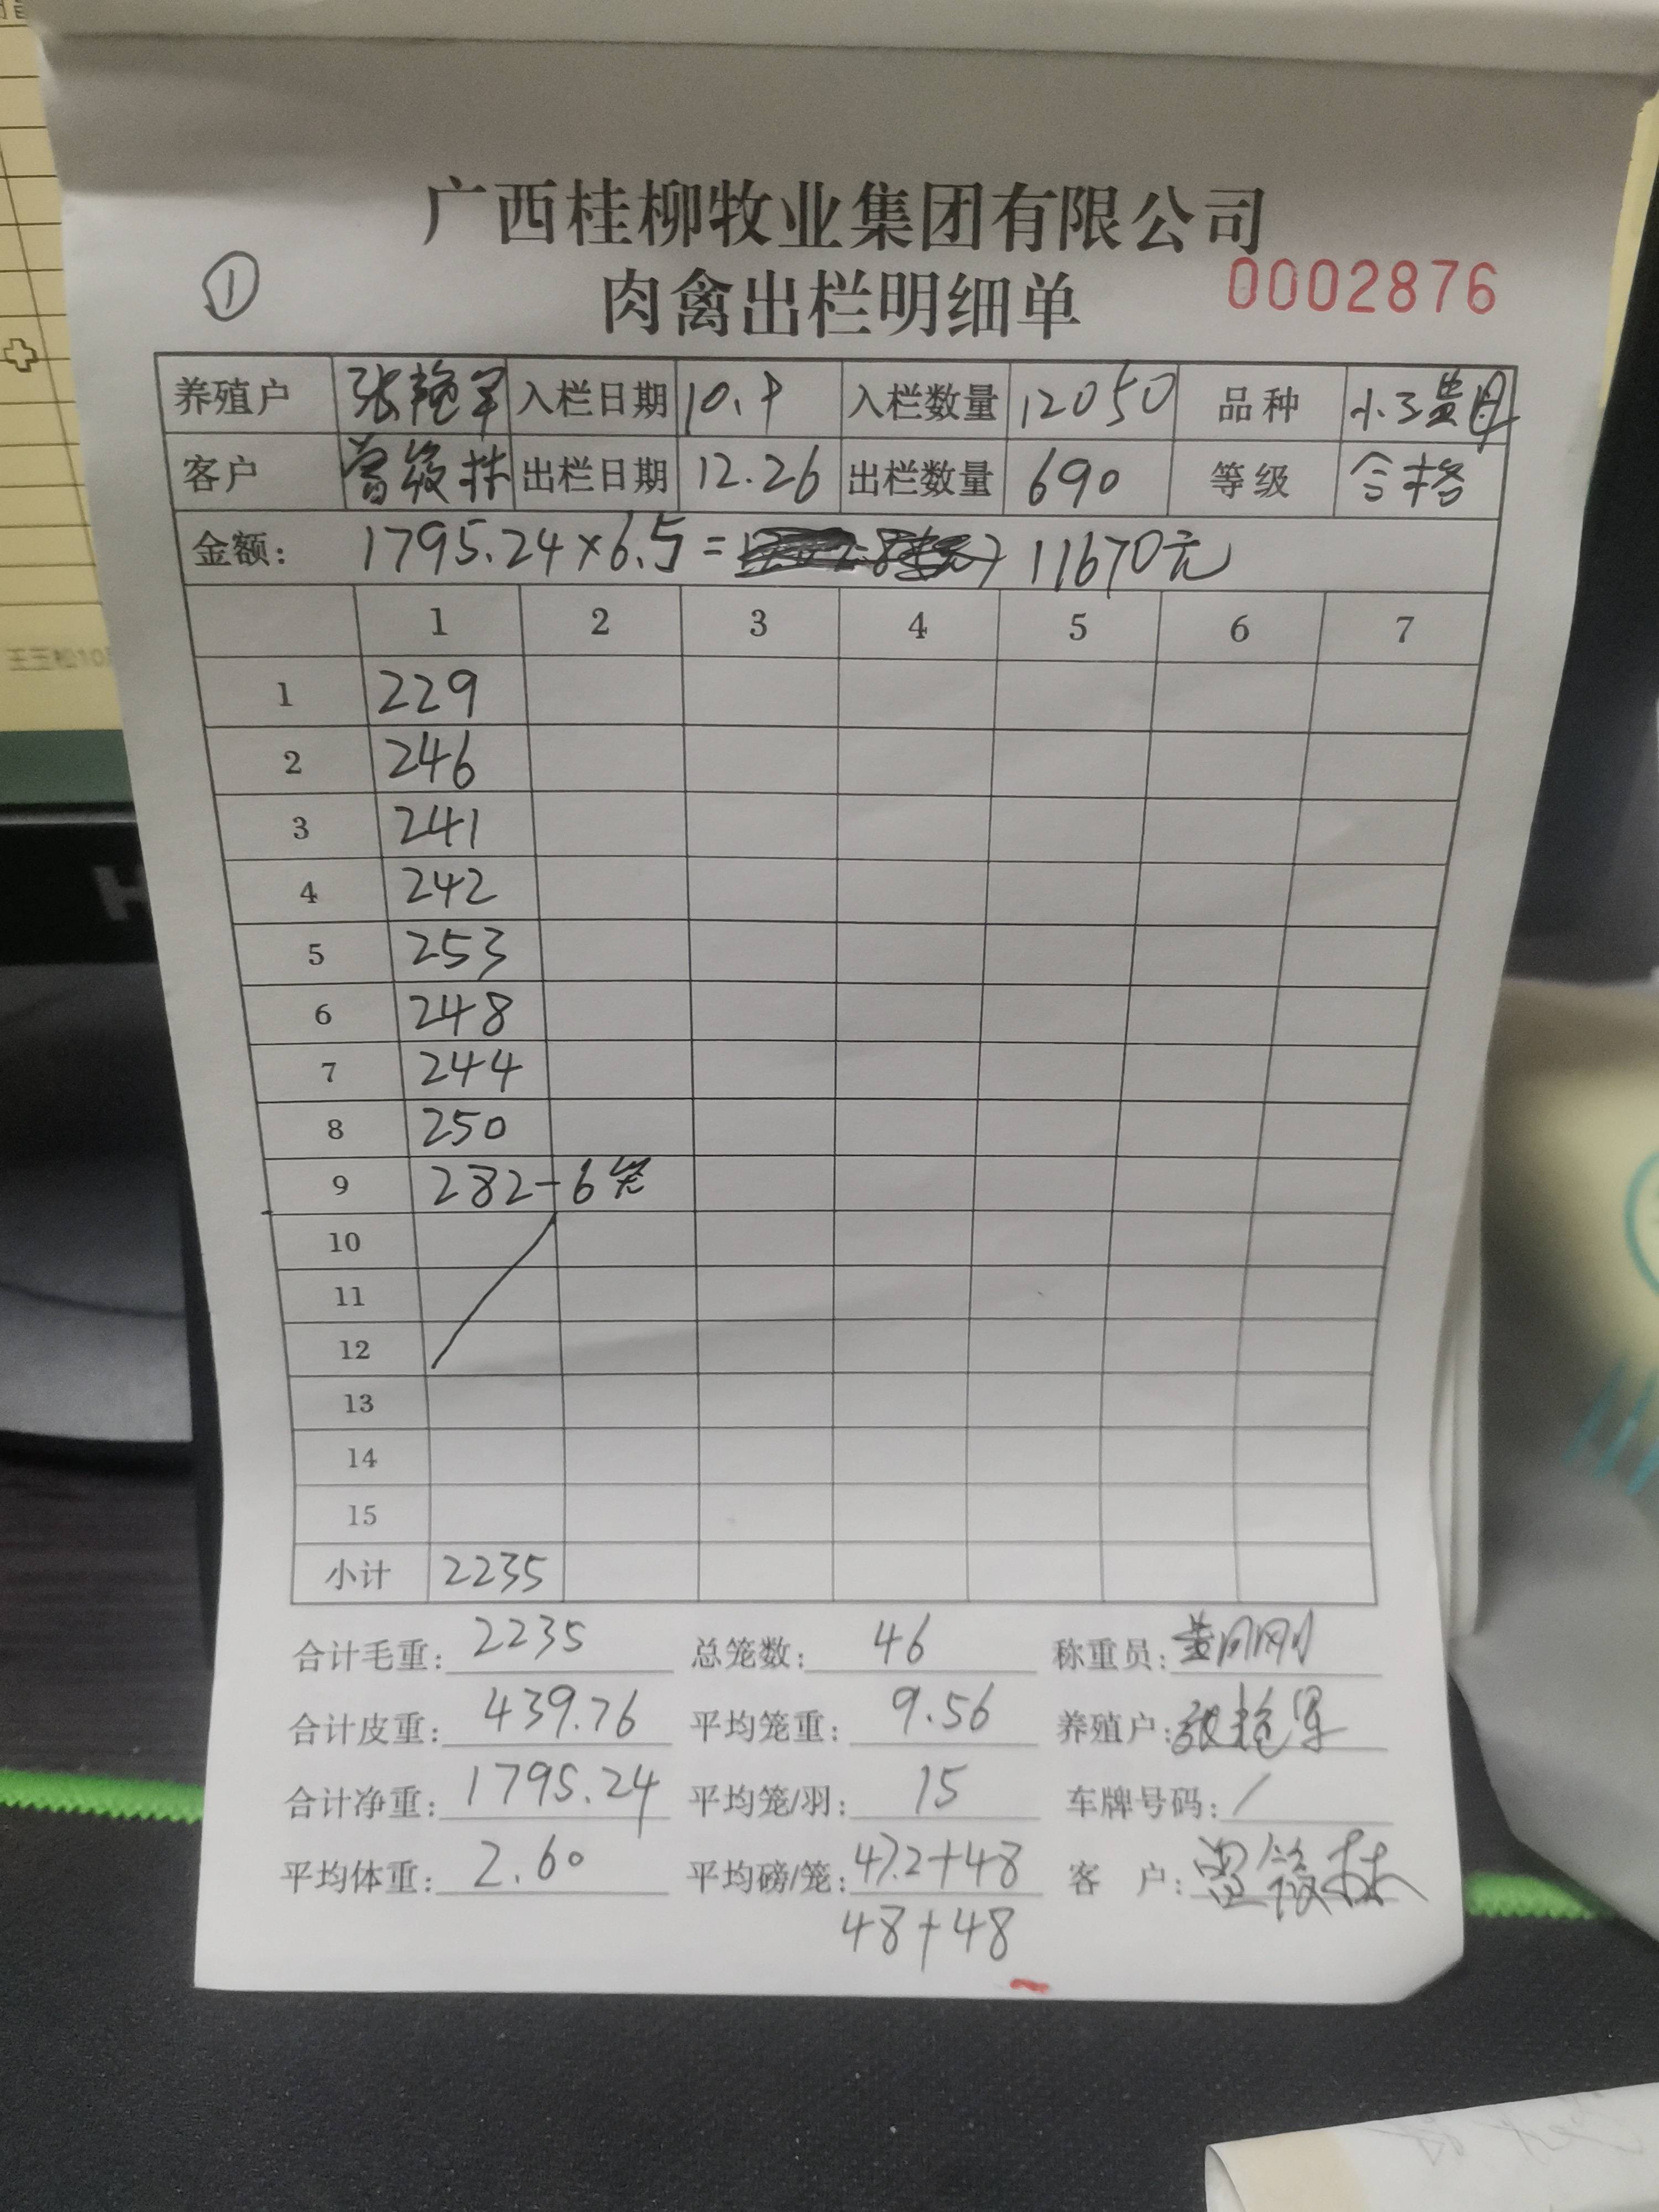 广西桂柳牧业集团有限公司
① 肉禽出栏明细单 0002876
养殖户 张艳军 入栏日期 10.9 入栏数量 12050 品种 小三黄母
客户 曾筱林 出栏日期 12.26 出栏数量 690 等级 合格
金额: 1795.24×6.5= 11670元
1 2 3 4 5 6 7
1 229
2 246
3 241
4 242
5 253
6 248
7 244
8 250
9 282-6笼
10
11
12
13
14
15
小计 2235
合计毛重: 2235 总笼数: 46 称重员: 黄刚刚
合计皮重: 439.76 平均笼重: 9.56 养殖户: 张艳军
合计净重: 1795.24 平均笼/羽: 15 车牌号码: /
平均体重: 2.60 平均磅/笼: 47.2+48 客 户: 曾筱林
48+48
王玉松10